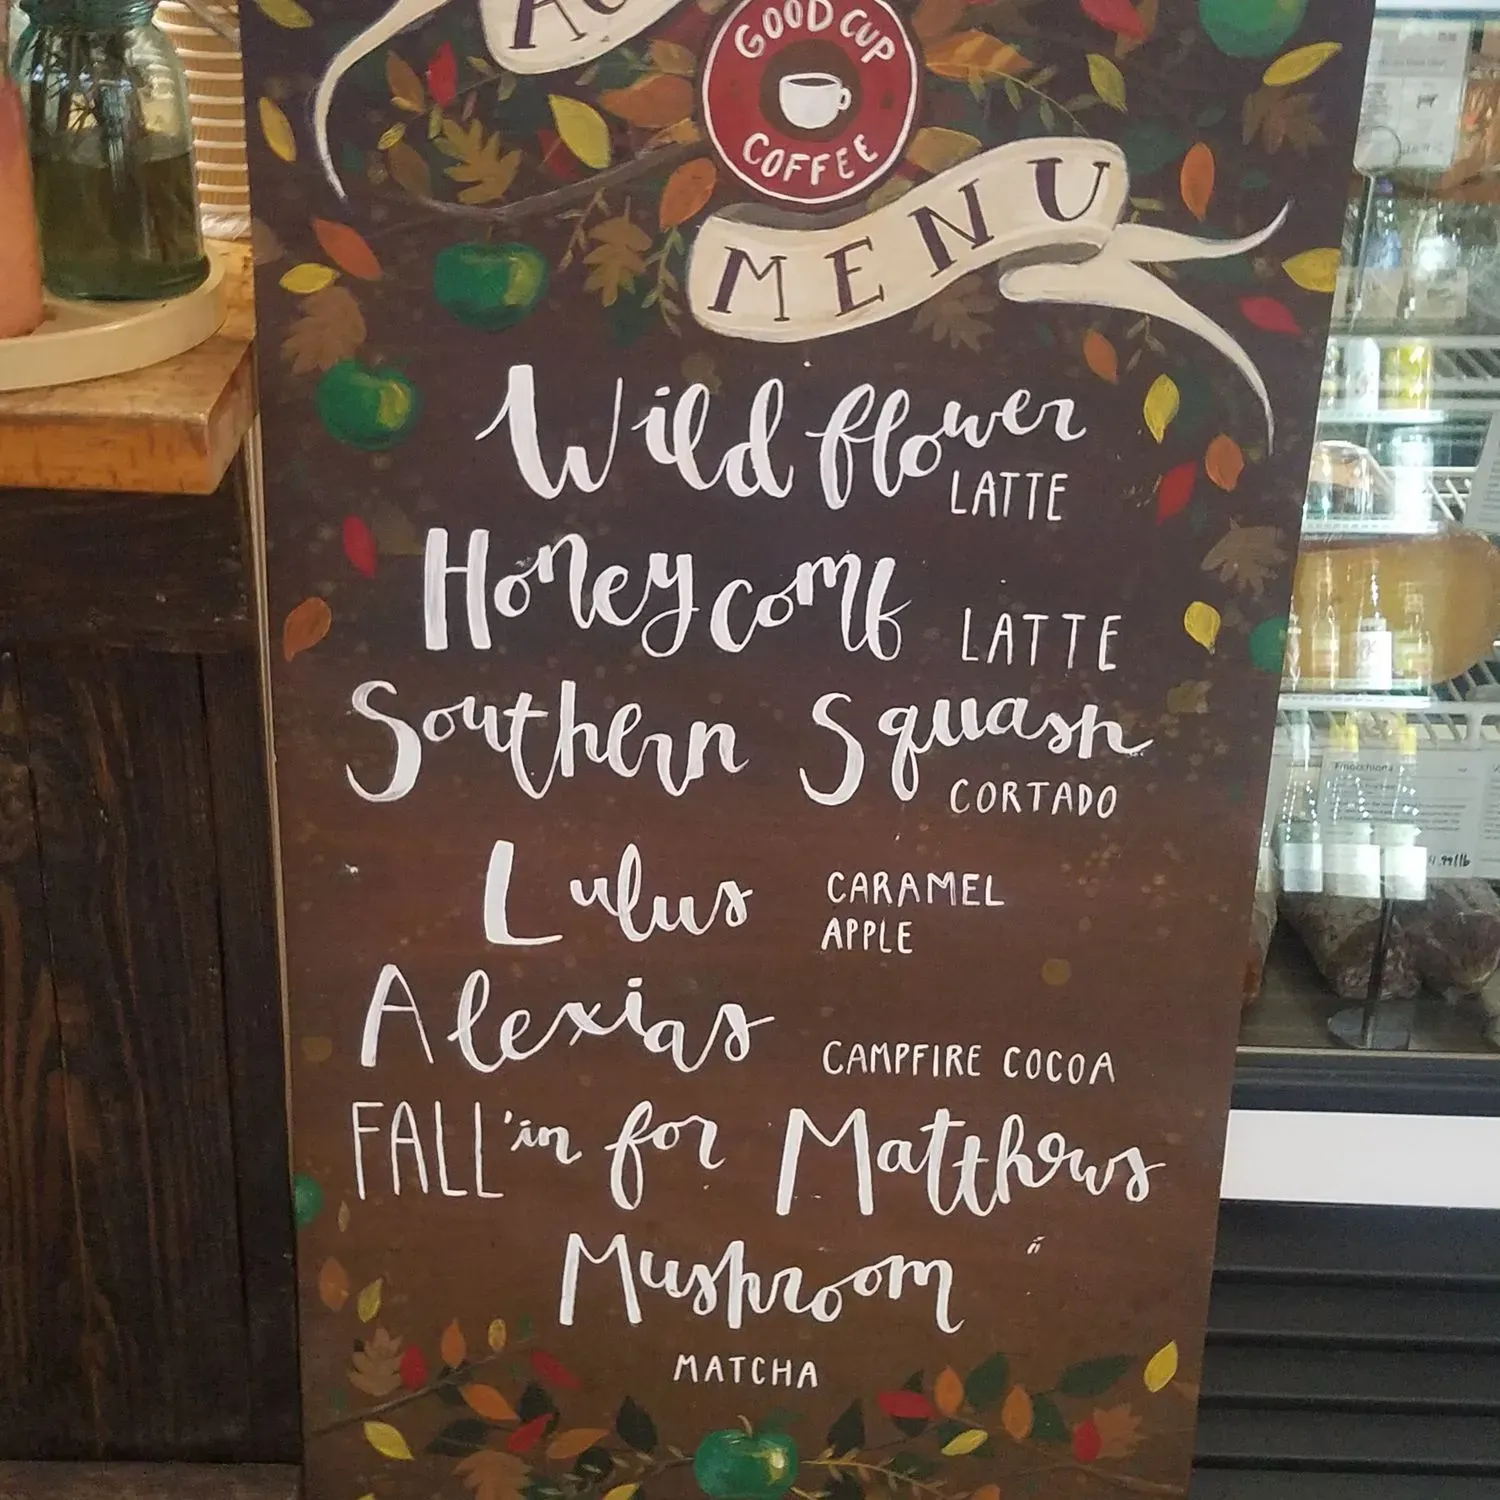 GOOD CUP
COFFEE
MENU
Wildflower
LATTE
Honeycomb LATTE
Southern Squash
CORTADO
Lulus CARAMEL
APPLE
Alexias CAMPFIRE COCOA
FALL'in for Matthews
Mushroom "
MATCHA